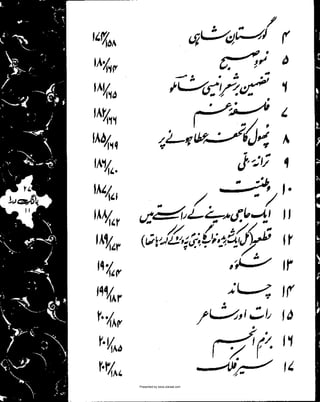 ۴ گورستانِ شاہی ۱۷۴/۱۵۸
۵ نمودِ صبح ۱۸۰/۱۶۴
۶ تضمین بر شعرِ انیسی شاملو ۱۸۱/۱۶۵
۷ فلسفۂ غم ۱۸۲/۱۶۶
۸ پھول کا تحفہ عطا ہونے پر ۱۸۵/۱۶۹
۹ ترانۂ ملی ۱۸۶/۱۷۰
۱۰ وطنیت ۱۸۷/۱۷۱
۱۱ ایک حاجی مدینے کے راستے میں ۱۸۸/۱۷۲
۱۲ قطعہ (کل ایک شوریدہ خواب گاہِ نبیؐ پہ رو رو کے کہہ رہا تھا) ۱۸۹/۱۷۳
۱۳ شکوہ ۱۹۰/۱۷۴
۱۴ چاند ۱۹۹/۱۸۳
۱۵ رات اور شاعر ۲۰۰/۱۸۴
۱۶ بزمِ انجم ۲۰۱/۱۸۵
۱۷ سیرِ فلک ۲۰۳/۱۸۷
بانگِ درا
۱۱